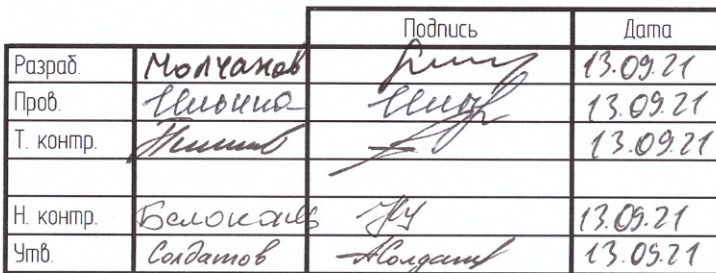 Подпись Дата
Разраб. Молчанов 13.09.21
Пров. Ильина 13.09.21
Т. контр. 13.09.21
Н. контр. 13.09.21
Утв. Солдатов 13.09.21